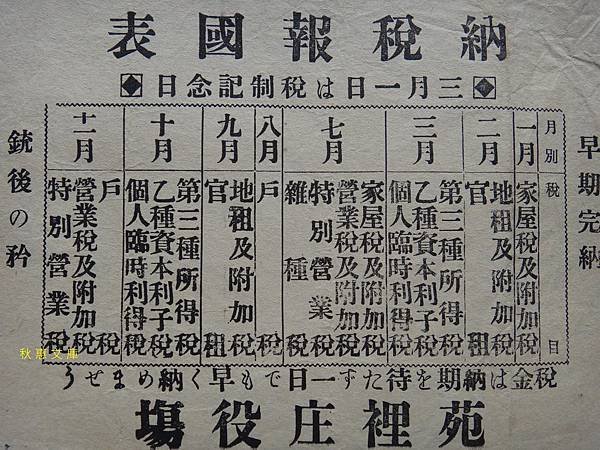 納稅報國表
三月一日は稅制記念日
早期完納
月別 稅目
一月
家屋稅及附加稅
二月
地租及附加稅
官租
三月
第三種所得稅
乙種資本利子稅
個人臨時利得稅
七月
家屋稅及附加稅
營業稅及附加稅
特別營業稅
雜種稅
八月
戶稅
九月
地租及附加稅
官租
十月
第三種所得稅
乙種資本利子稅
個人臨時利得稅
十一月
戶稅
營業稅及附加稅
特別營業稅
銃後の矜
稅金は納期を待たず一日でも早く納めませう
苑裡庄役塲
秋惠文庫